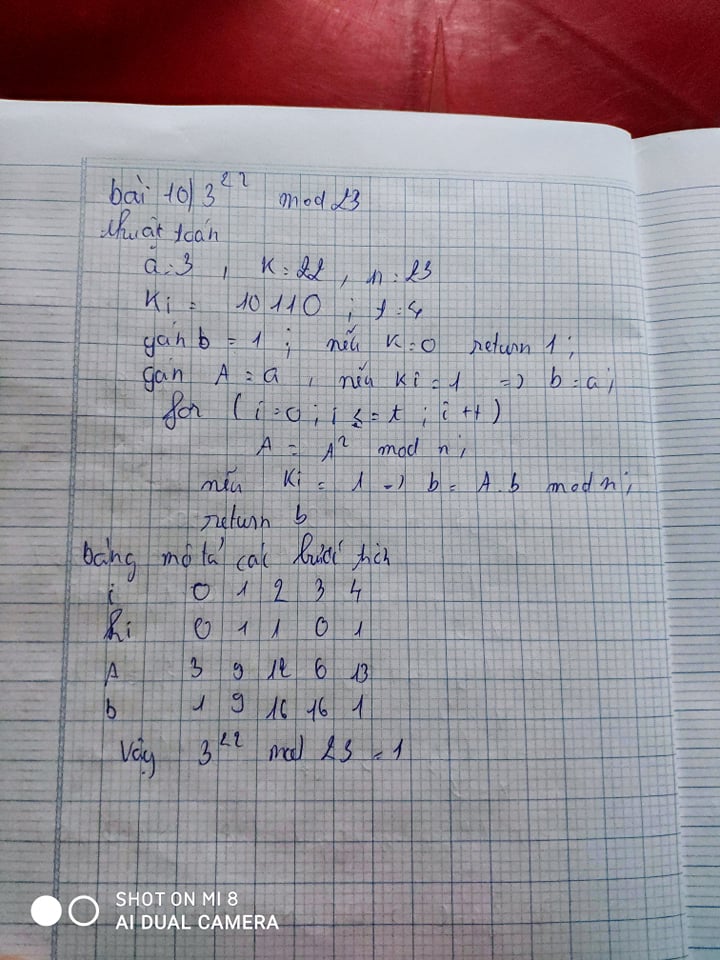 bài 10) 3^22 mod 23
thuật toán
a = 3 , K = 22 , n = 23
Ki = 10110 ; t = 4
gán b = 1 ; nếu K = 0 return 1 ;
gán A = a , nếu Ki = 1 => b = a ;
for ( i = 0 ; i <= t ; i ++ )
A = A^2 mod n ;
nếu Ki = 1 -> b = A.b mod n ;
return b
bảng mô tả các bước tính
i 0 1 2 3 4
ki 0 1 1 0 1
A 3 9 12 6 13
b 1 9 16 16 1
Vậy 3^22 mod 23 = 1
SHOT ON MI 8
AI DUAL CAMERA